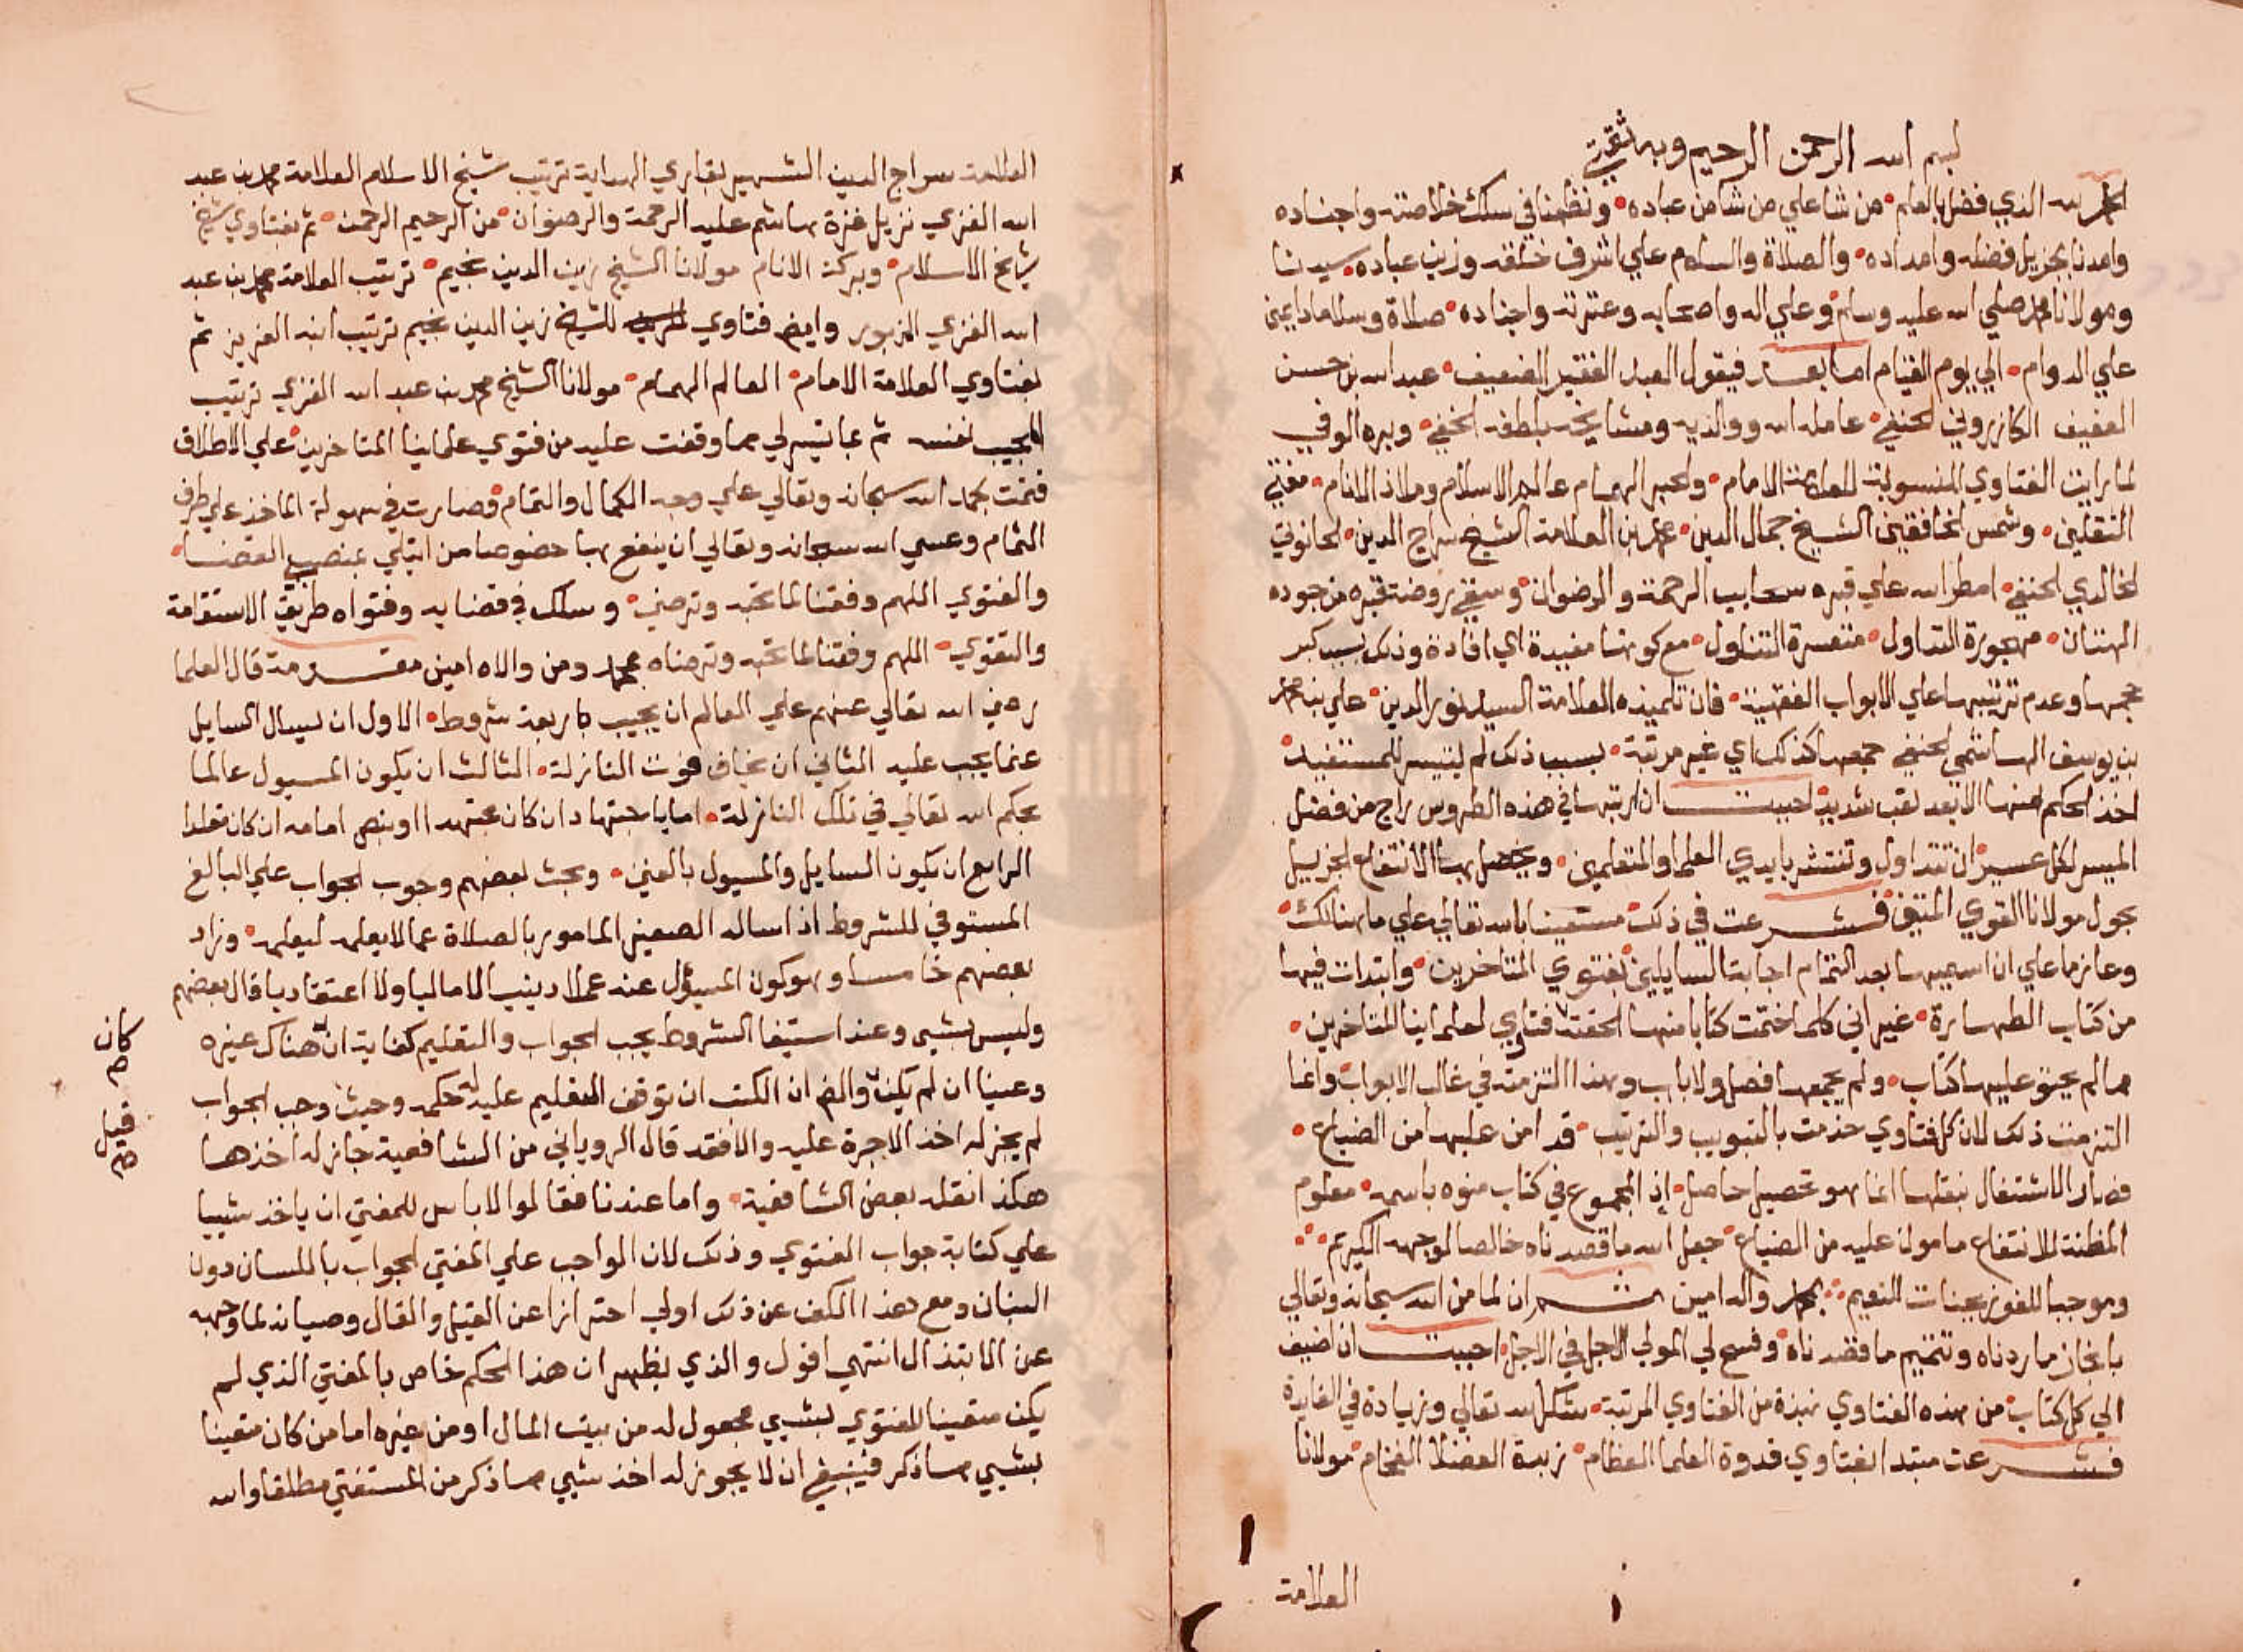 بسم الله الرحمن الرحيم وبه ثقتي
الحمد لله الذي فضل بالعلم من شا علي من شا من عباده ونظمنا في سلك خلاصته واجناده
وامدنا بجزيل فضله وامداده والصلاة والسلام علي اشرف خلقه وزين عباده سيدنا
ومولانا محمد صلي الله عليه وسلم وعلي اله واصحابه وعترته واجناده صلاة وسلاما دايمين
علي الدوام الي يوم القيام اما بعد فيقول العبد الفقير الضعيف عبد الله بن حسن
العفيف الكازروني الحنفي عامله الله ووالديه ومشايخه بلطفه الخفي وبره الوفي
لما رايت الفتاوي المنسوبة للعلامة الامام والحبر الهمام عالم الاسلام وملاذ الانام مفتي
الثقلين وشمس الخافقين الشيخ جمال الدين محمد بن العلامة الشيخ سراج الدين الحانوتي
الخالدي الحنفي امطر الله علي قبره سحايب الرحمة والرضوان وسقي روضة قبره من جوده
الهتان مهجورة التداول متعسرة التناول مع كونها مفيدة اي افادة وذلك بسبب كبر
حجمها وعدم ترتيبها علي الابواب الفقهية فان تلميذه العلامة السيد نور الدين علي بن محمد
بن يوسف الهاشمي الحنفي جمعها كذلك اي غير مرتبة بسبب ذلك لم يتيسر للمستفيد
اخذ الحكم منها الا بعد تعب شديد احببت ان ارتبها في هذه الطروس راج من فضل
الميسر لكل عسير ان تتداول وتنتشر بايدي العلما والمتعلمين ويحصل بها الانتفاع الجزيل
بحول مولانا القوي المتين فشرعت في ذلك مستعينا بالله تعالي علي ما هنالك
وعازما علي ان اسميها بعد التمام اجابة السايلين بفتوي المتاخرين وابتدات فيها
من كتاب الطهارة غير اني كلما اختمت كتابا منها الحقته فتاوي لعلماينا المتاخرين
مما لم يحتو عليها كتاب ولم يجمعها فصل ولا باب وهذا التزمته في غالب الابواب وانما
التزمت ذلك لان كل فتاوي خدمت بالتبويب والترتيب قد امن عليها من الضياع
فصار الاشتغال بنقلها انما هو تحصيل حاصل اذ المجموع في كتاب منوه باسمه معلوم
المظنة للانتفاع مامون عليه من الضياع جعل الله ما قصدناه خالصا لوجهه الكريم
وموجبا للفوز بجنات النعيم بمحمد واله امين ثم ان لما من الله سبحانه وتعالي
بانجاز ما ردناه وتتميم ما قصدناه وفسح لي المولي الاجل في الاجل احببت ان اضيف
الي كل كتاب من هذه الفتاوي نبذة من الفتاوي المرتبة شكرا لله تعالي وزيادة في الفايدة
فشرعت مبتدا بفتاوي قدوة العلما العظام زبدة الفضلا الفخام مولانا
العلامة
العلامة سراج الدين الشهير بقاري الهداية ترتيب شيخ الاسلام العلامة محمد بن عبد
الله الغزي نزيل غزة هاشم عليه الرحمة والرضوان من الرحيم الرحمن ثم بفتاوي شيخ
شايخ الاسلام وبركة الانام مولانا الشيخ زين الدين نجيم ترتيب العلامة محمد بن عبد
الله الغزي المزبور وايض فتاوي للشيخ زين الدين نجيم ترتيب ابنه العزيز ثم
بفتاوي العلامة الامام العالم الهمام مولانا الشيخ محمد بن عبد الله الغزي ترتيب
المجيب نفسه ثم بما تيسر لي مما وقفت عليه من فتوي علماينا المتاخرين علي الاطلاق
فتمت بحمد الله سبحانه وتعالي علي وجه الكمال والتمام وصارت في سهولة الماخذ علي طرف
الثمام وعسي الله سبحانه وتعالي ان ينفع بها خصوصا من ابتلي بمنصب القضا
والفتوي اللهم وفقنا لما تحبه وترضي وسلك في قضايه وفتواه طريق الاستقامة
والتقوي اللهم وفقنا لما تحبه وترضاه بمحمد ومن والاه امين مقدمة قال العلما
رضي الله تعالي عنهم علي العالم ان يجيب باربعة شروط الاول ان يسال السايل
عنما يجب عليه الثاني ان يخاف فوت النازلة الثالث ان يكون المسيول عالما
بحكم الله تعالي في تلك النازلة اما باجتهاد ان كان مجتهدا او بنص امامه ان كان مقلدا
الرابع ان يكون السايل والمسيول بالغين وبحث بعضهم وجوب الجواب علي البالغ
المستوفي للشروط اذا ساله الصغير المامور بالصلاة عما لا يعلمه ليعلمه وزاد
بعضهم خامسا وهو كون المسؤل عنه عملا دينيا لا ماليا ولا اعتقاديا قال بعضهم
وليس بشيي وعند استيفا الشروط يجب الجواب والتعليم كفاية ان هناك غيره
وعينا ان لم يكن والض ان الكتب ان توقف التعليم عليه لحكمه وحيث وجب الجواب
لم يجز له اخذ الاجرة عليه والا فقد قال الروياني من الشافعية جاز له اخذها
هكذا نقله بعض الشافعية واما عندنا فقالوا لا باس للمفتي ان ياخذ شييا
علي كتابة جواب الفتوي وذلك لان الواجب علي المفتي الجواب باللسان دون
البنان ومع هذا الكف عن ذلك اولي احترازا عن القيل والقال وصيانة لما وجهه
عن الابتذال انتهي اقول والذي يظهر ان هذا الحكم خاص بالمفتي الذي لم
يكن متعينا للفتوي بشيي مجعول له من بيت المال او من غيره اما من كان متعينا
بشيي مما ذكر فينبغي ان لا يجوز له اخذ شيي مما ذكر من المستفتي مطلقا والله
كان
صح
قيل
صح